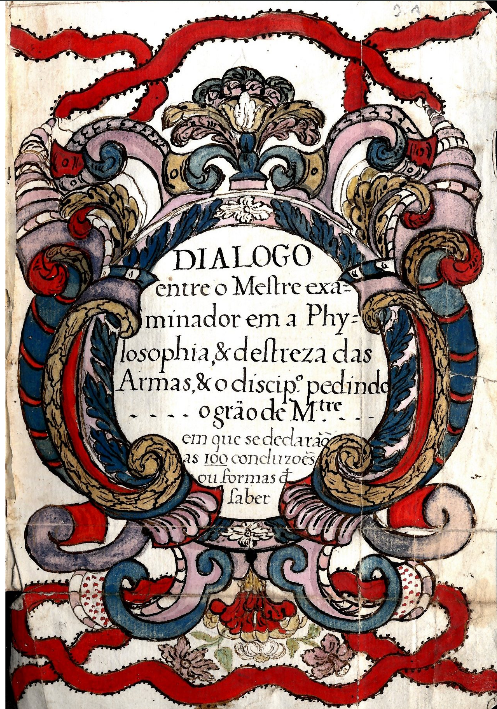 DIALOGO
entre o Meſtre exa=
minador em a Phy=
loſophia, & deſtreza das
Armas, & o diſcip.º pedindo
o grão de M.tre
em que se declarão
as 100 concluzoẽs
ou formas q̃
ſaber